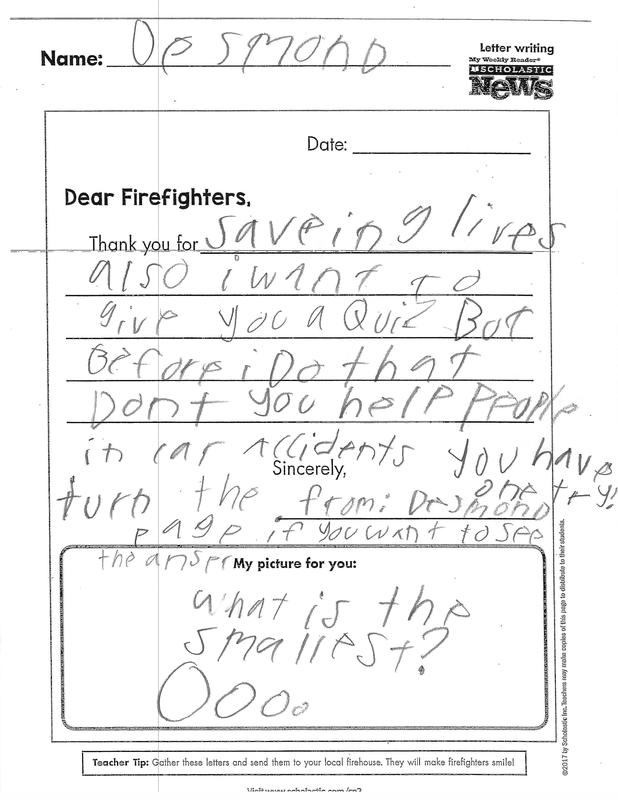 Name: Desmond
Letter writing
My Weekly Reader®
SCHOLASTIC
NeWS
Date:
Dear Firefighters,
Thank you for saveing lives
also i want to
give you a Quiz But
Before i Do that
Dont you help people
in car accidents you have
Sincerely,
one try!
turn the from: Desmond
page if you want to see
the anser My picture for you:
What is the
smallest?
O o o o
Teacher Tip: Gather these letters and send them to your local firehouse. They will make firefighters smile!
©2017 by Scholastic Inc. Teachers may make copies of this page to distribute to their students.
Visit www.scholastic.com/sn2